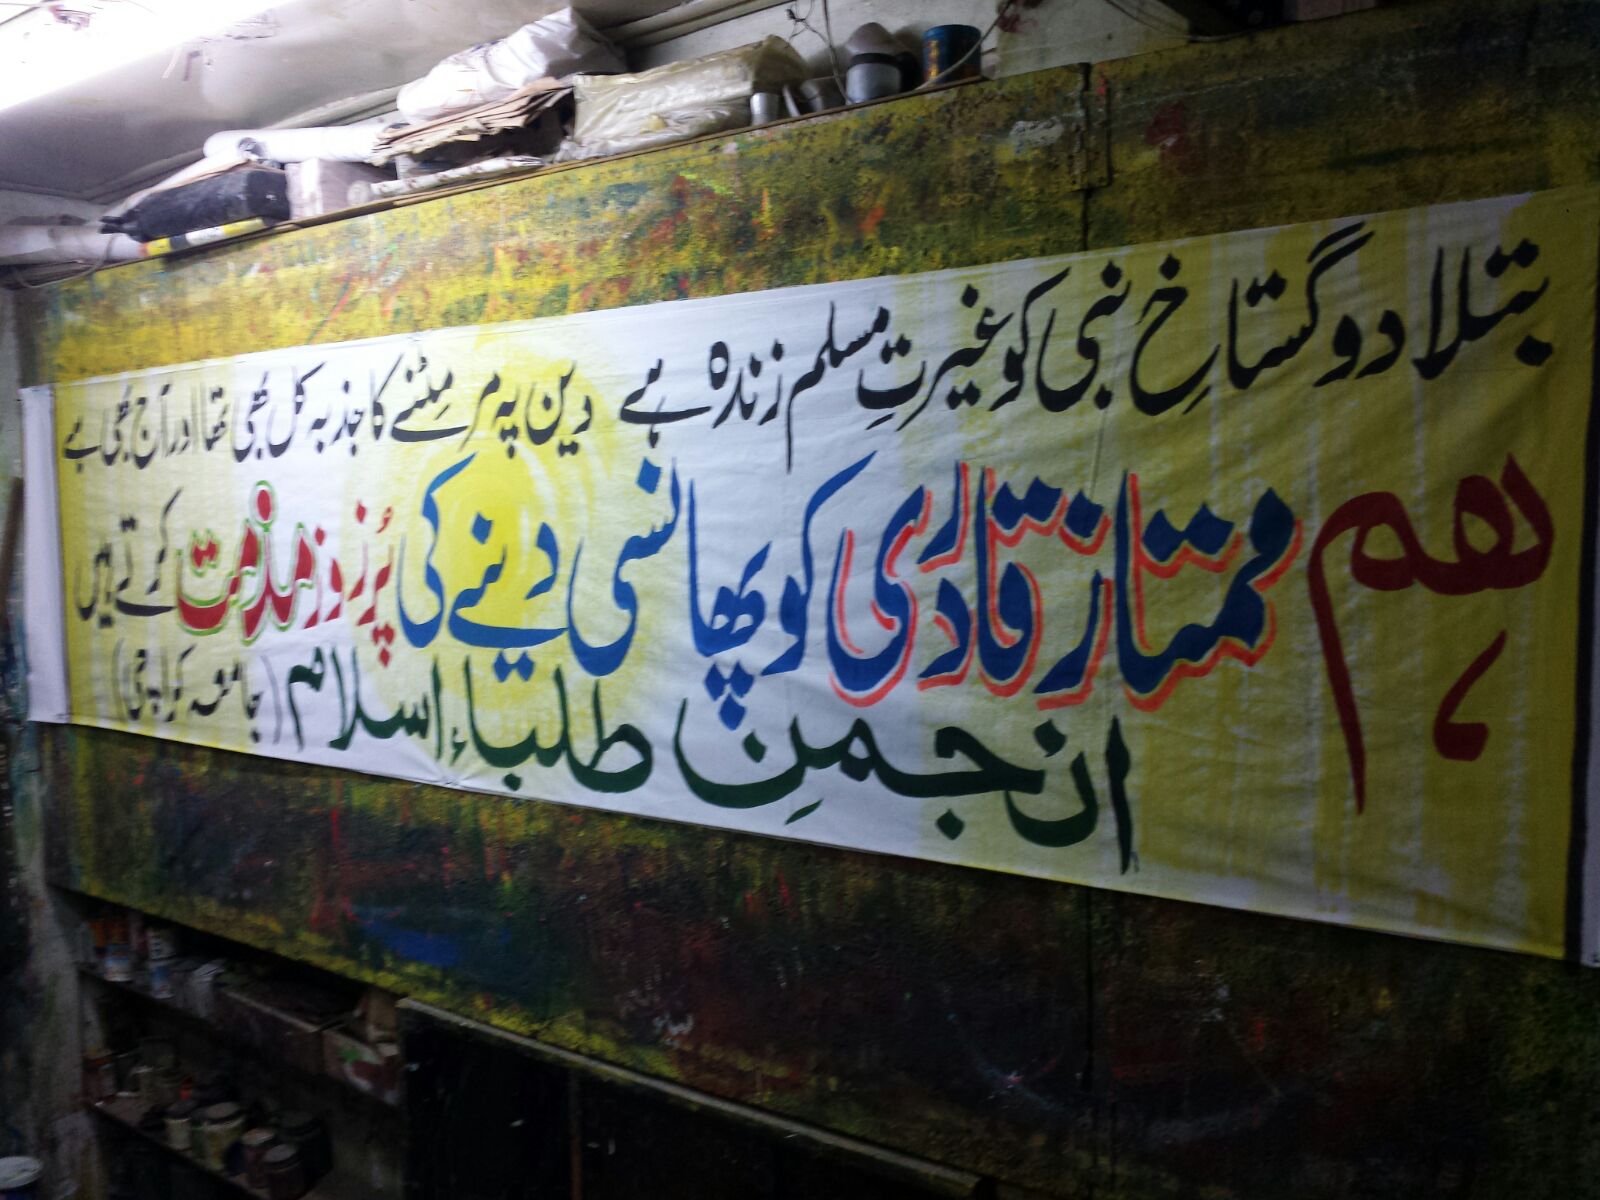 بتلا دو گستاخِ نبی کو غیرتِ مسلم زندہ ہے دین پہ مر مٹنے کا جذبہ کل بھی تھا اور آج بھی ہے
ہم ممتاز قادری کو پھانسی دینے کی پُرزور مذمت کرتے ہیں
انجمنِ طلباء اسلام (جامعہ کراچی)